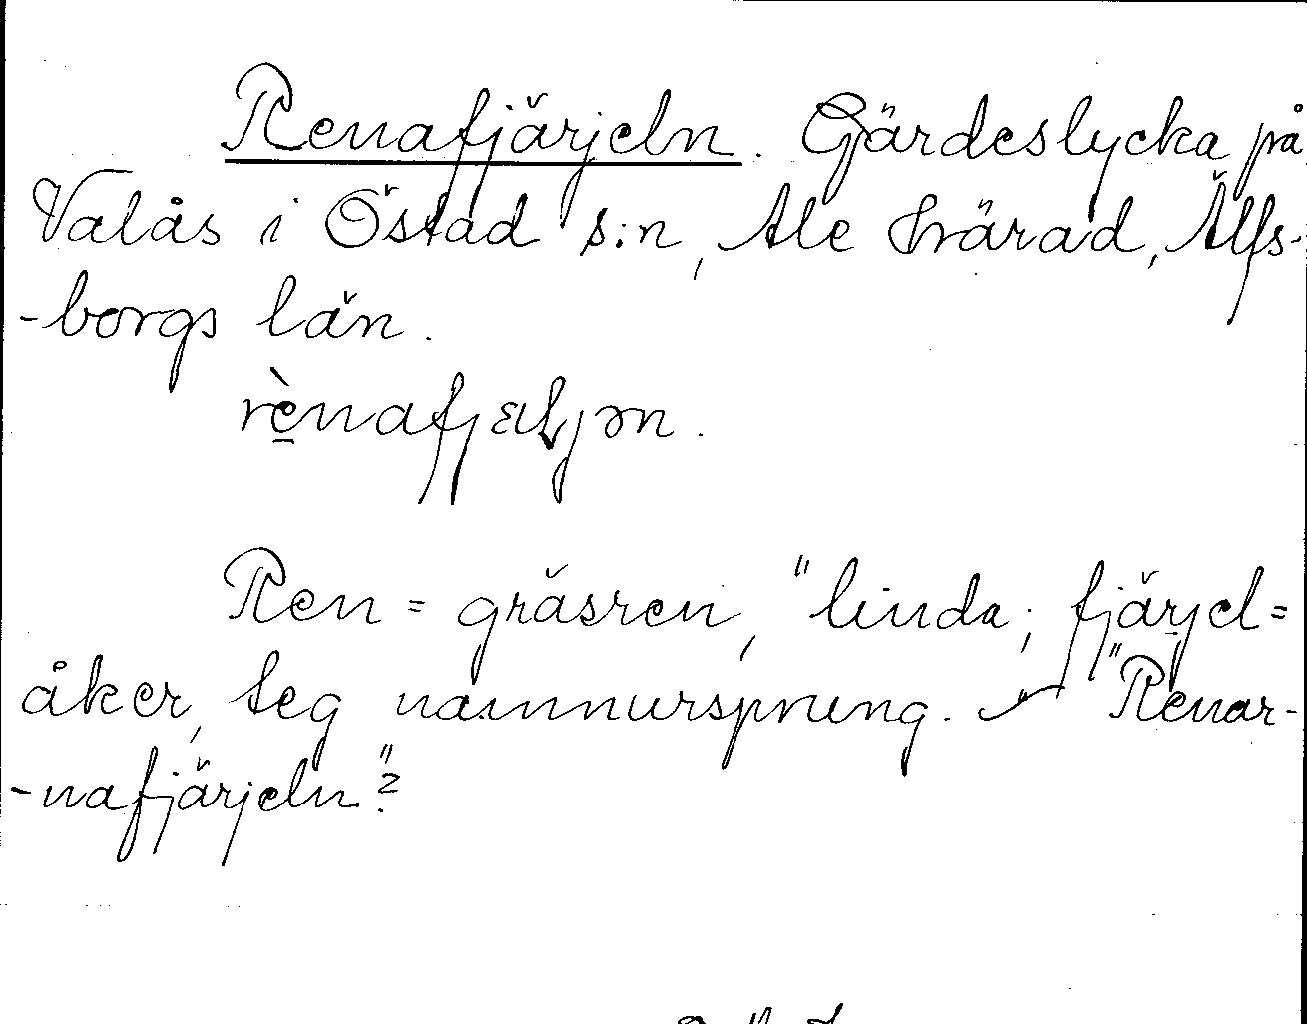 Renafjärjeln. Gärdeslycka på
Valås i Östad s:n, Ale härad, Älfs-
-borgs län.
rènafjæljən.
Ren = gräsren, "linda; fjärjel =
åker, teg namnursprung. "Renar-
-nafjärjeln"?